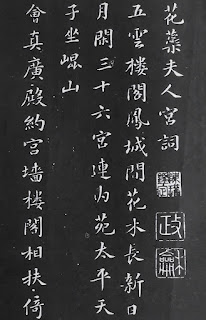 花蘂夫人宮詞
五雲楼閣鳳城間花木長新日
月閑三十六宮連内苑太平天
子坐崐山
會真廣殿約宮墻楼閣相扶倚
政